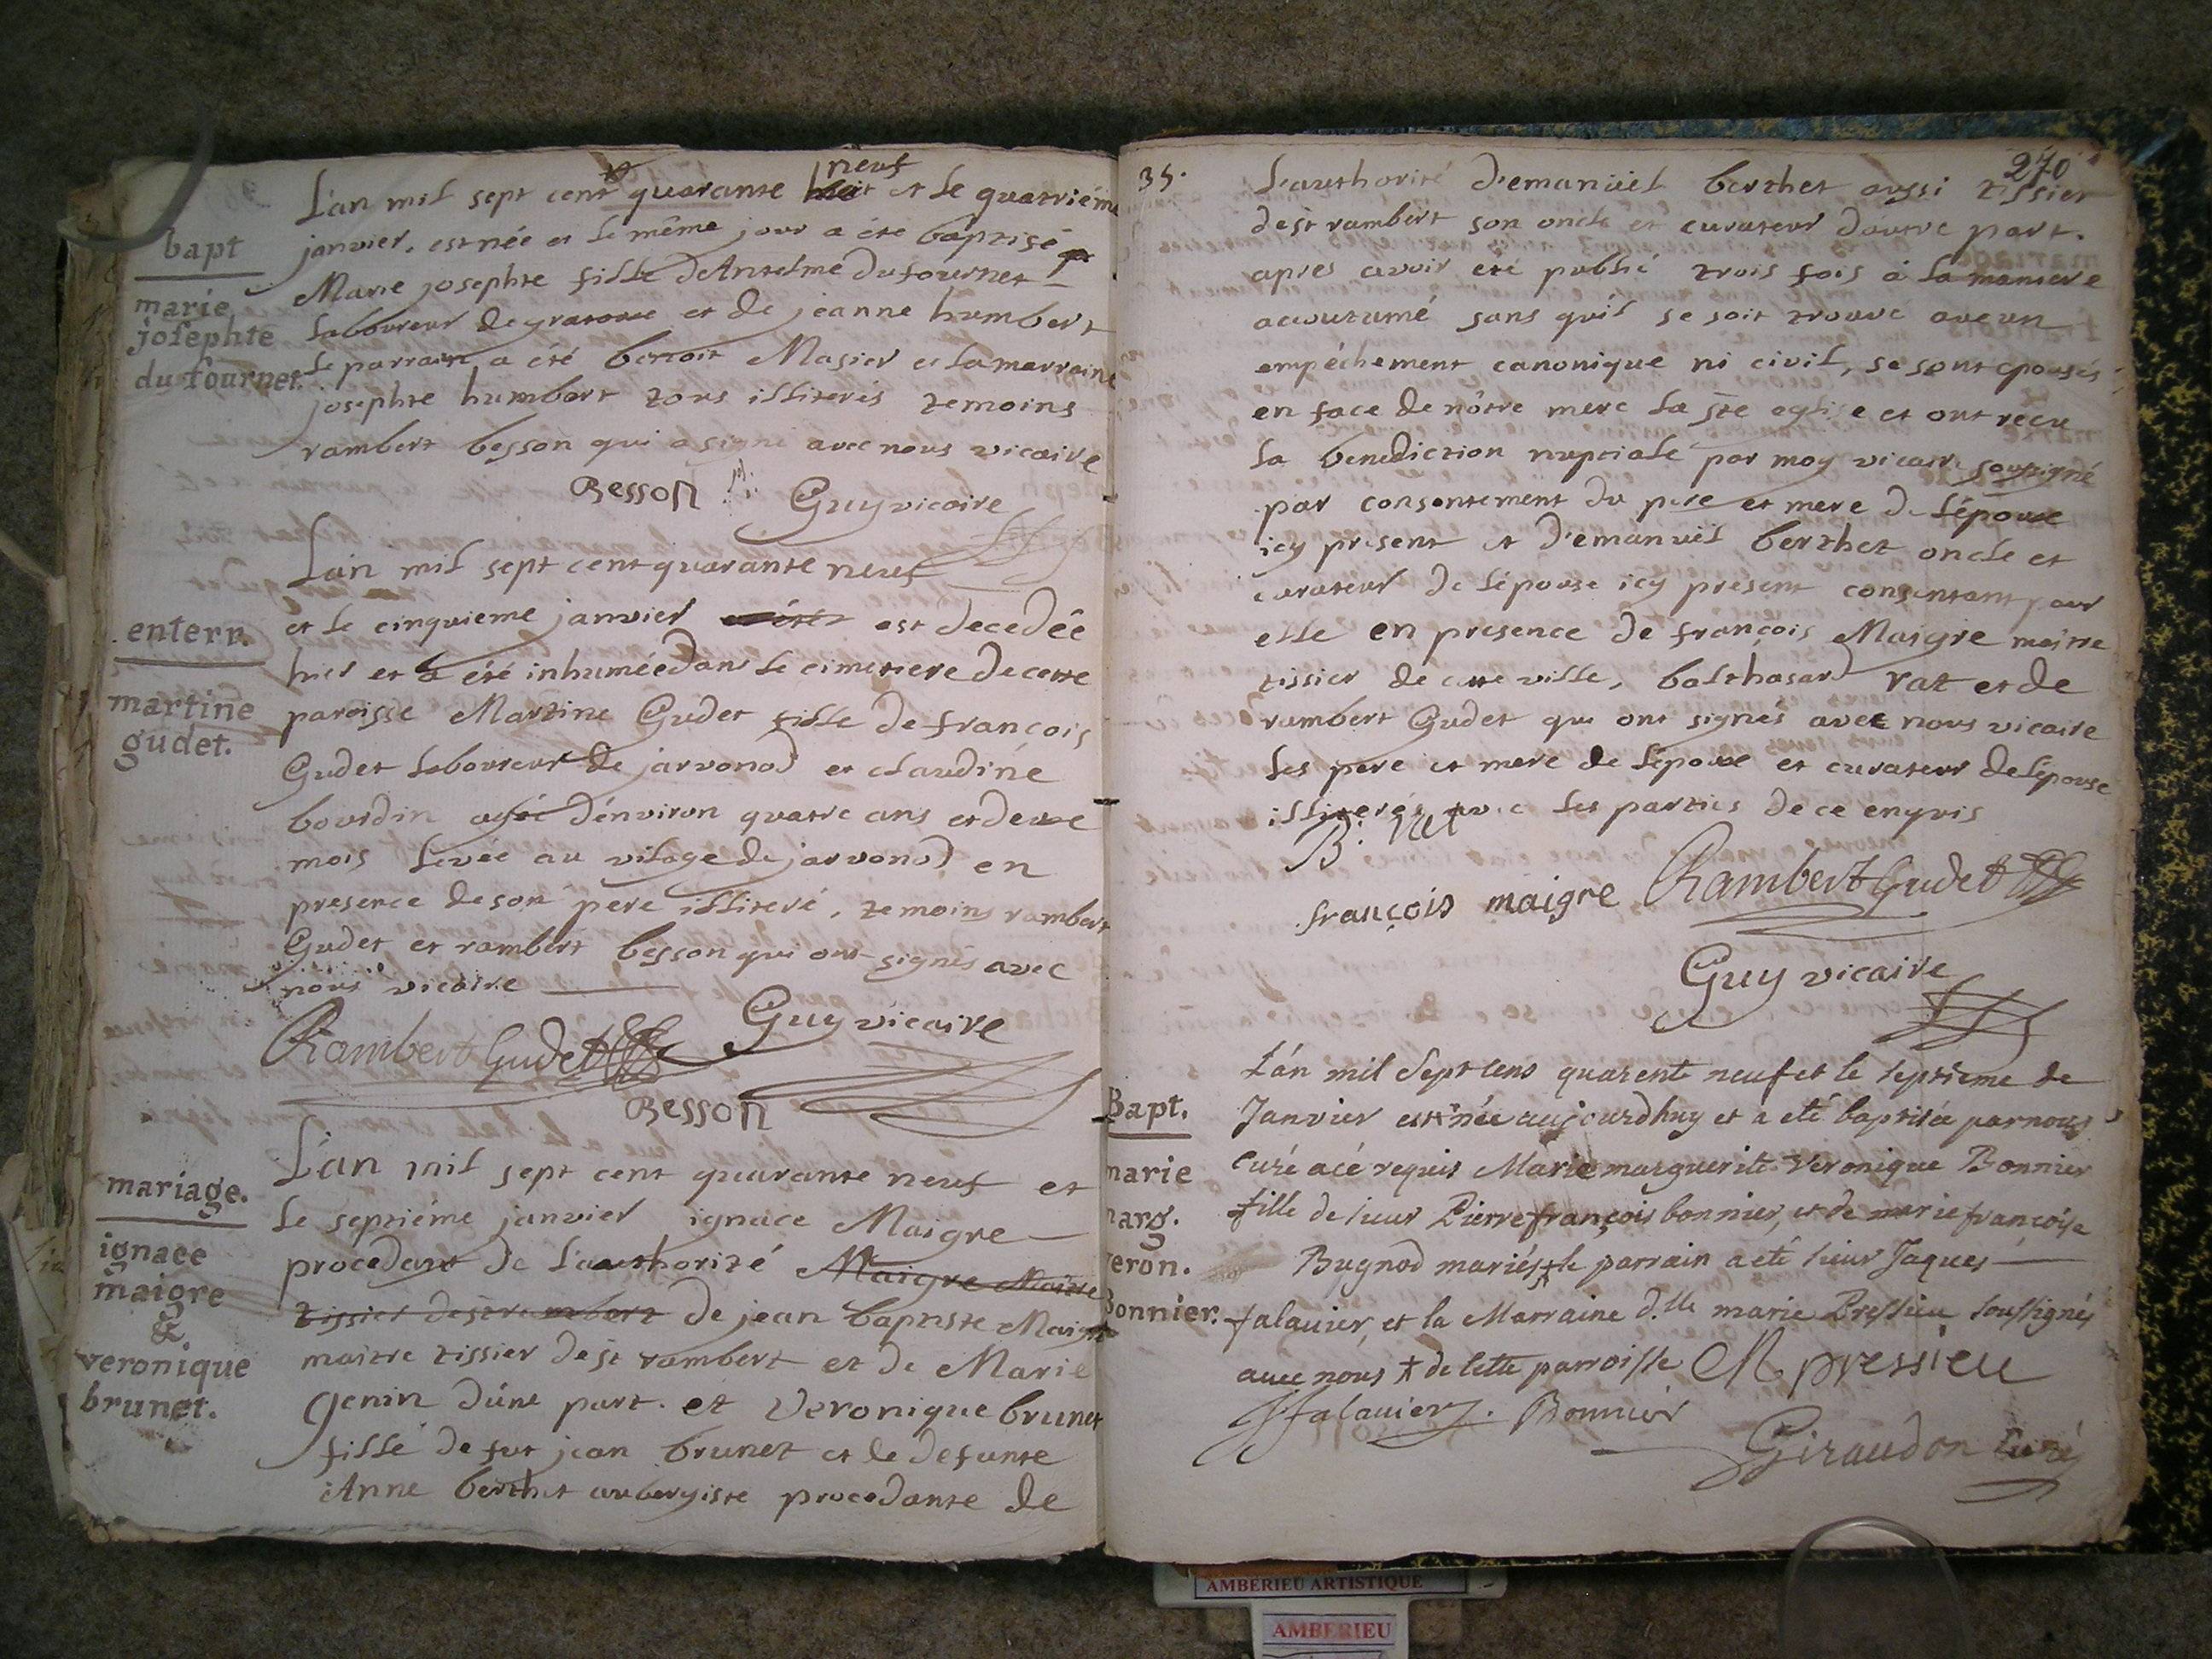 L'an mil sept cent quarante huit neuf et le quatriéme
bapt
janvier. est née et le même jour a été baptisé
marie
josephte
du fournet.
Marie josephte fille d'Antelme Dufournet
laboureur de gratoux et de jeanne humbert
le parrain a été benoit Masier et la marraine
josephte humbert tous illiterés temoins
rambert besson qui a signé avec nous vicaire
Besson Guy vicaire
L'an mil sept cent quarante neuf
enterr.
et le cinquieme janvier est decedée
hier et a été inhumée dans le cimetiere de cette
martine
gudet.
paroisse Martine Gudet fille de françois
Gudet laboureur de jarvonod et claudine
bourdin agée d'environ quatre ans et deux
mois levée au vilage de jarvonod en
presence de son pere illiteré, temoins rambert
Gudet et rambert besson qui ont signés avec
nous vicaire
Rambert Gudet Guy vicaire
Besson
mariage.
L'an mil sept cent quarante neuf et
le septiéme janvier ignace Maigre
ignace
maigre
&
veronique
brunet.
procedant de l'authorité Maigre Maitre
tissier de st rambert de jean baptiste Maigre
maitre tissier de st rambert et de Marie
Genin d'une part. et Veronique brunet
fille de fut jean brunet et de defunte
Anne berthet aubergiste procedante de
35. 270
L'authorité d'emanüel berthet aussi tissier
de st rambert son oncle et curateur d'autre part.
apres avoir eté publié trois fois à la maniere
accoutumé sans qu'il se soit trouvé aucun
empéchement canonique ni civil, se sont epousés
en face de nôtre mere la ste eglise et ont recu
la benediction nuptiale par moy vicaire soussigné
par consentement du pere et mere de l'époux
icy present et d'emanuël berthet oncle et
curateur de l'épouse icy present consentant pour
elle en presence de françois Maigre maitre
tissier de cette ville, balthasard rat et de
rambert Gudet qui ont signés avec nous vicaire
les pere et mere de l'époux et curateur de l'épouse
illiterés avec les parties de ce enquis
B. rat
françois maigre Rambert Gudet
Guy vicaire
L'an mil sept cens quarente neuf et le septieme de
Bapt.
Janvier est née aujourdhuy et a eté baptisée par nous
marie
marg.
veron.
Bonnier.
curé acé requis Marie marguerite Veronique Bonnier
fille de sieur Pierre françois bonnier, et de marie françoise
Bugnod mariés ⁜ le parrain a eté sieur Jaques
falavier, et la Marraine d.lle marie Pressieu soussignés
avec nous ⁜ de cette parroisse M pressieu
falavier. Bonnier
Giraudon curé
AMBERIEU ARTISTIQUE
AMBERIEU